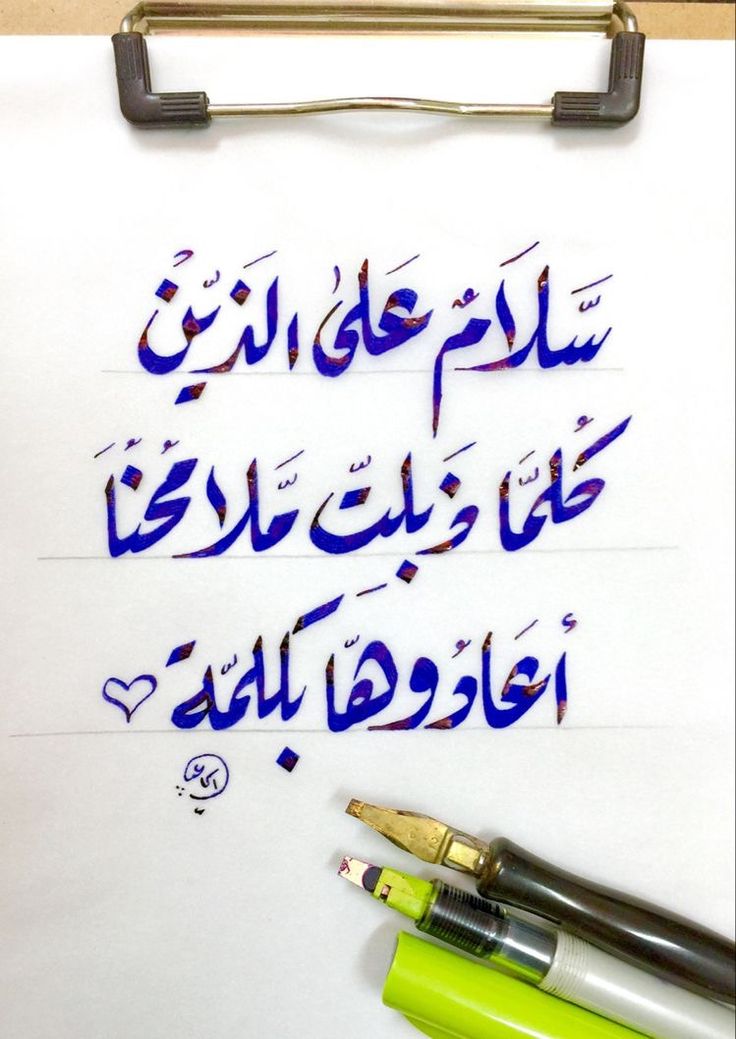 سَّلَامٌ عَلىٰ الَذيّنْ
كُلمَّا ذَبلتّ مَّلامحُنُا
أعَادُوهّا بَكلمّة